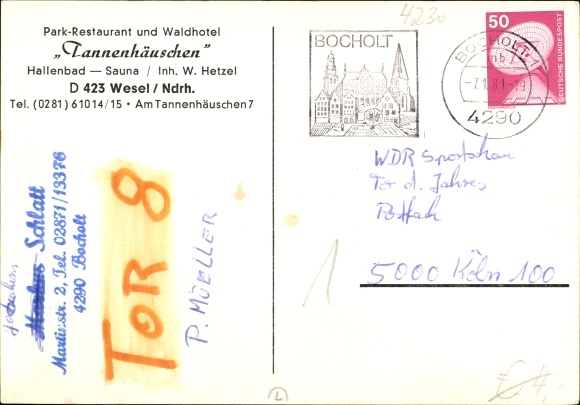 Park-Restaurant und Waldhotel
„Tannenhäuschen"
Hallenbad — Sauna / Inh. W. Hetzel
D 423 Wesel / Ndrh.
Tel. (0281) 61014/15 • Am Tannenhäuschen 7
4230
BOCHOLT
BOCHOLT 1
-7.1.81-19
4290
50
DEUTSCHE BUNDESPOST
WDR Sportschau
Tor d. Jahres
Postfach
5000 Köln 100
Schlatt
Martinstr. 2, Tel. 02871/13376
4290 Bocholt
TOR 8
P. MÜELLER
1
L
€ 4,-